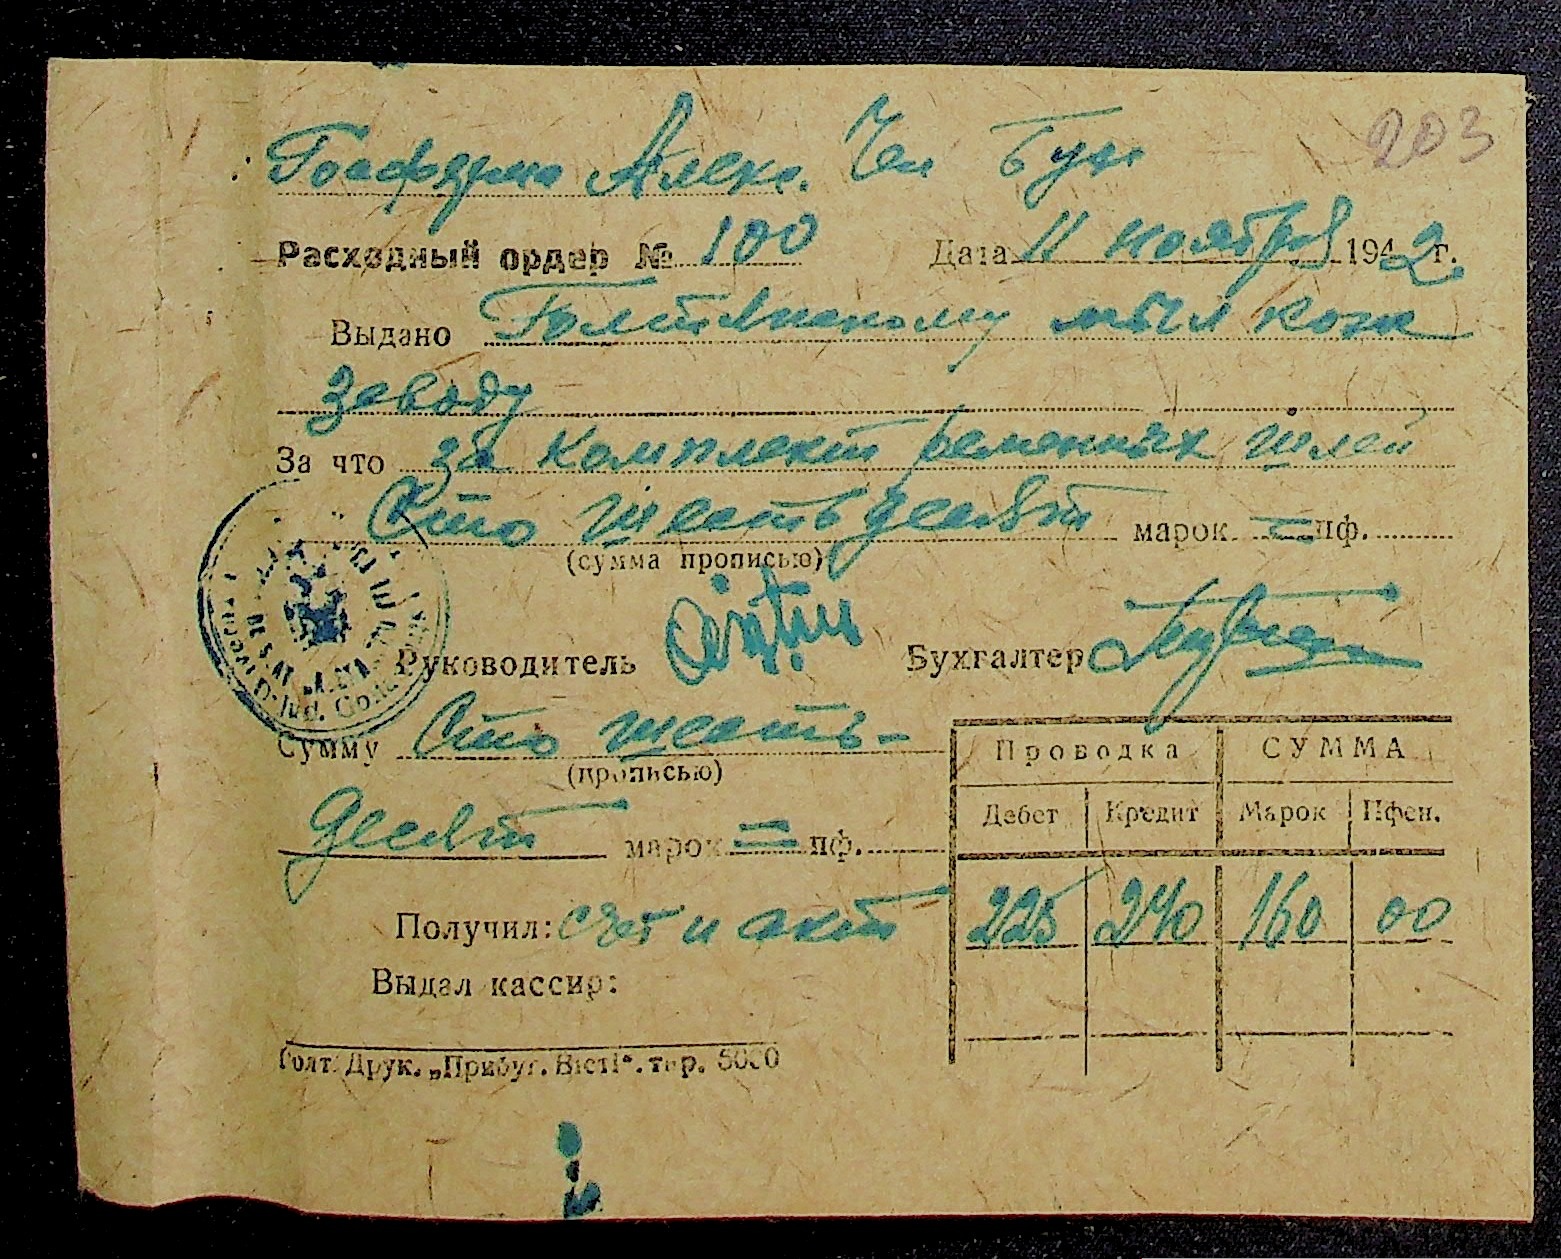 203
Госферма Алекс.
Расходный ордер № 100 Дата 11 ноября 1942 г.
Выдано Голтянскому мыл кож
заводу
За что за комплект ременных шлей
Сто шестьдесят марок = пф.
(сумма прописью)
Руководитель Бухгалтер
Сумму Сто шесть-
(прописью)
десят марок = пф.
Проводка СУММА
Дебет Кредит Марок Пфен.
225 240 160 00
Получил: счет и акт
Выдал кассир:
Голт. Друк. „Прибуг. Вісті“. тир. 5000